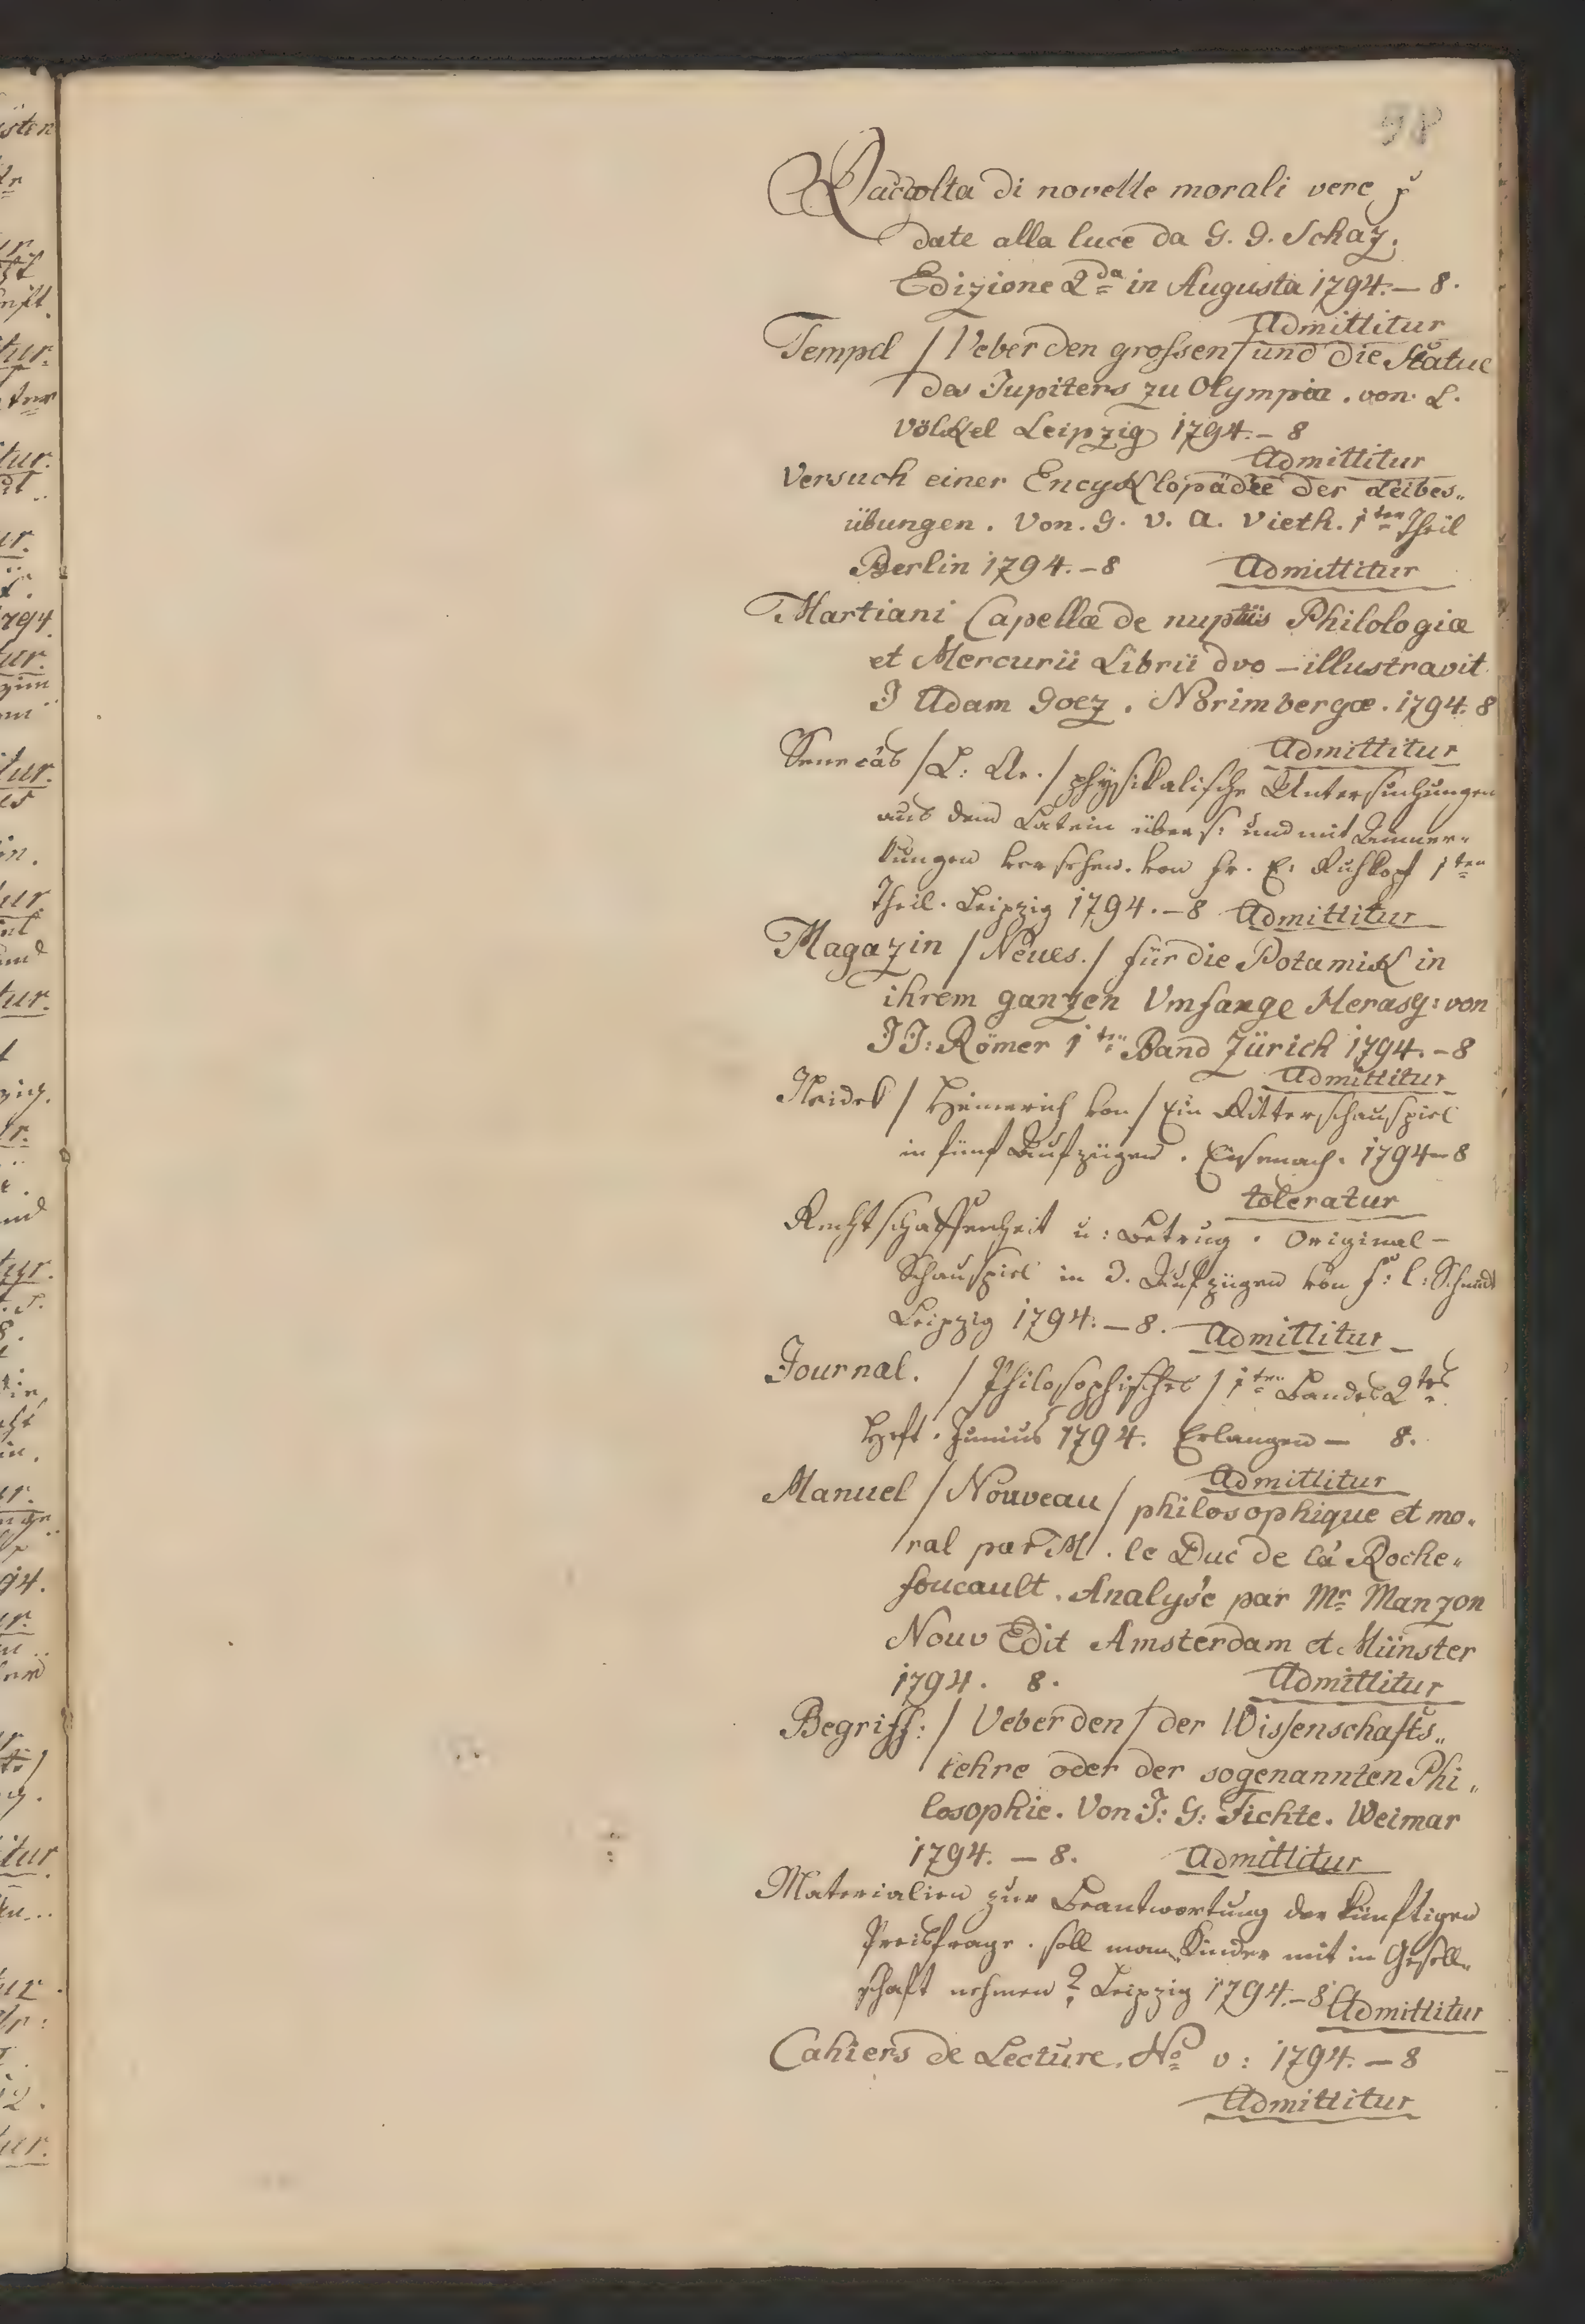 98
Raccolta di novelle morali vere
date alla luce da G. G. Schaz.
Edizione 2da in Augusta 1794. – 8.
Admittitur
Tempel / Ueber den grossen / und die Statue
des Jupiters zu Olympia. von. L.
Völkel Leipzig 1794. – 8
Admittitur
Versuch einer Encyklopädie der Leibes„
übungen. Von. G. V. A. Vieth. 1ter Theil
Berlin 1794. – 8 Admittitur
Martiani Capellæ de nuptiis Philologiæ
et Mercurii Librii dvo – illustravit
J Adam Goez. Norimbergæ. 1794. 8
Admittitur
Senecas / L: An. / physikalische Untersuchungen
aus dem Latein übers: und mit Anmer„
kungen versehen. von Fr. E. Ruhkopf 1ter
Theil. Leipzig 1794. – 8 Admittitur
Magazin / Neues. / für die Botanik in
ihrem ganzen Umfange Herausg: von
J J: Römer 1ter Band Zürich 1794. – 8
Admittitur
Heidek / Heinerich von / Ein Ritterschauspiel
in fünf Aufzügen. Eisenach. 1794 – 8
toleratur
Rechtschaffenheit u: Betrug. Original –
Schauspiel in 3. Aufzügen von F: L: Schmidt
Leipzig 1794. – 8. Admittitur
Journal. / Philosophisches / 1ten Bandes 2tes
Heft. Junius 1794. Erlangen – 8.
Admittitur
Manuel / Nouveau / philosophique et mo„
ral par M. le Duc de la Roche„
foucault. Analyse par Mr Manzon
Nouv Edit Amsterdam et Münster
1794. 8. Admittitur
Begriff: / Ueber den / der Wissenschafts„
lehre oder der sogenannten Phi„
losophie. Von J: G: Fichte. Weimar
1794. – 8. Admittitur
Materialien zur Beantwortung der künftigen
Preisfrage. soll man Kinder mit in Gesell„
schaft nehmen? Leipzig 1794. – 8 Admittitur
Cahiers de Lecture. No v: 1794. – 8
Admittitur